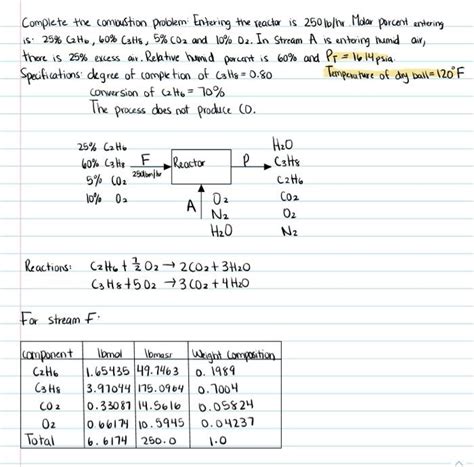 Complete the combustion problem: Entering the reactor is 250 lb/hr. Molar percent entering
is: 25% C2H6, 60% C3H8, 5% CO2 and 10% O2. In Stream A is entering humid air,
there is 25% excess air. Relative humid percent is 60% and PT = 16.14 psia.
Specifications: degree of completion of C3H8 = 0.80 Temperature of dry ball = 120°F
conversion of C2H6 = 70%
The process does not produce CO.
25% C2H6
60% C3H8
5% CO2
10% O2
F
250lbm/hr
Reactor
P
H2O
C3H8
C2H6
CO2
O2
N2
A
O2
N2
H2O
Reactions: C2H6 + 7/2 O2 → 2CO2 + 3H2O
C3H8 + 5O2 → 3CO2 + 4H2O
For stream F:
component lbmol lbmass Weight Composition
C2H6 1.65435 49.7463 0.1989
C3H8 3.97044 175.0964 0.7004
CO2 0.33087 14.5616 0.05824
O2 0.66174 10.5945 0.04237
Total 6.6174 250.0 1.0